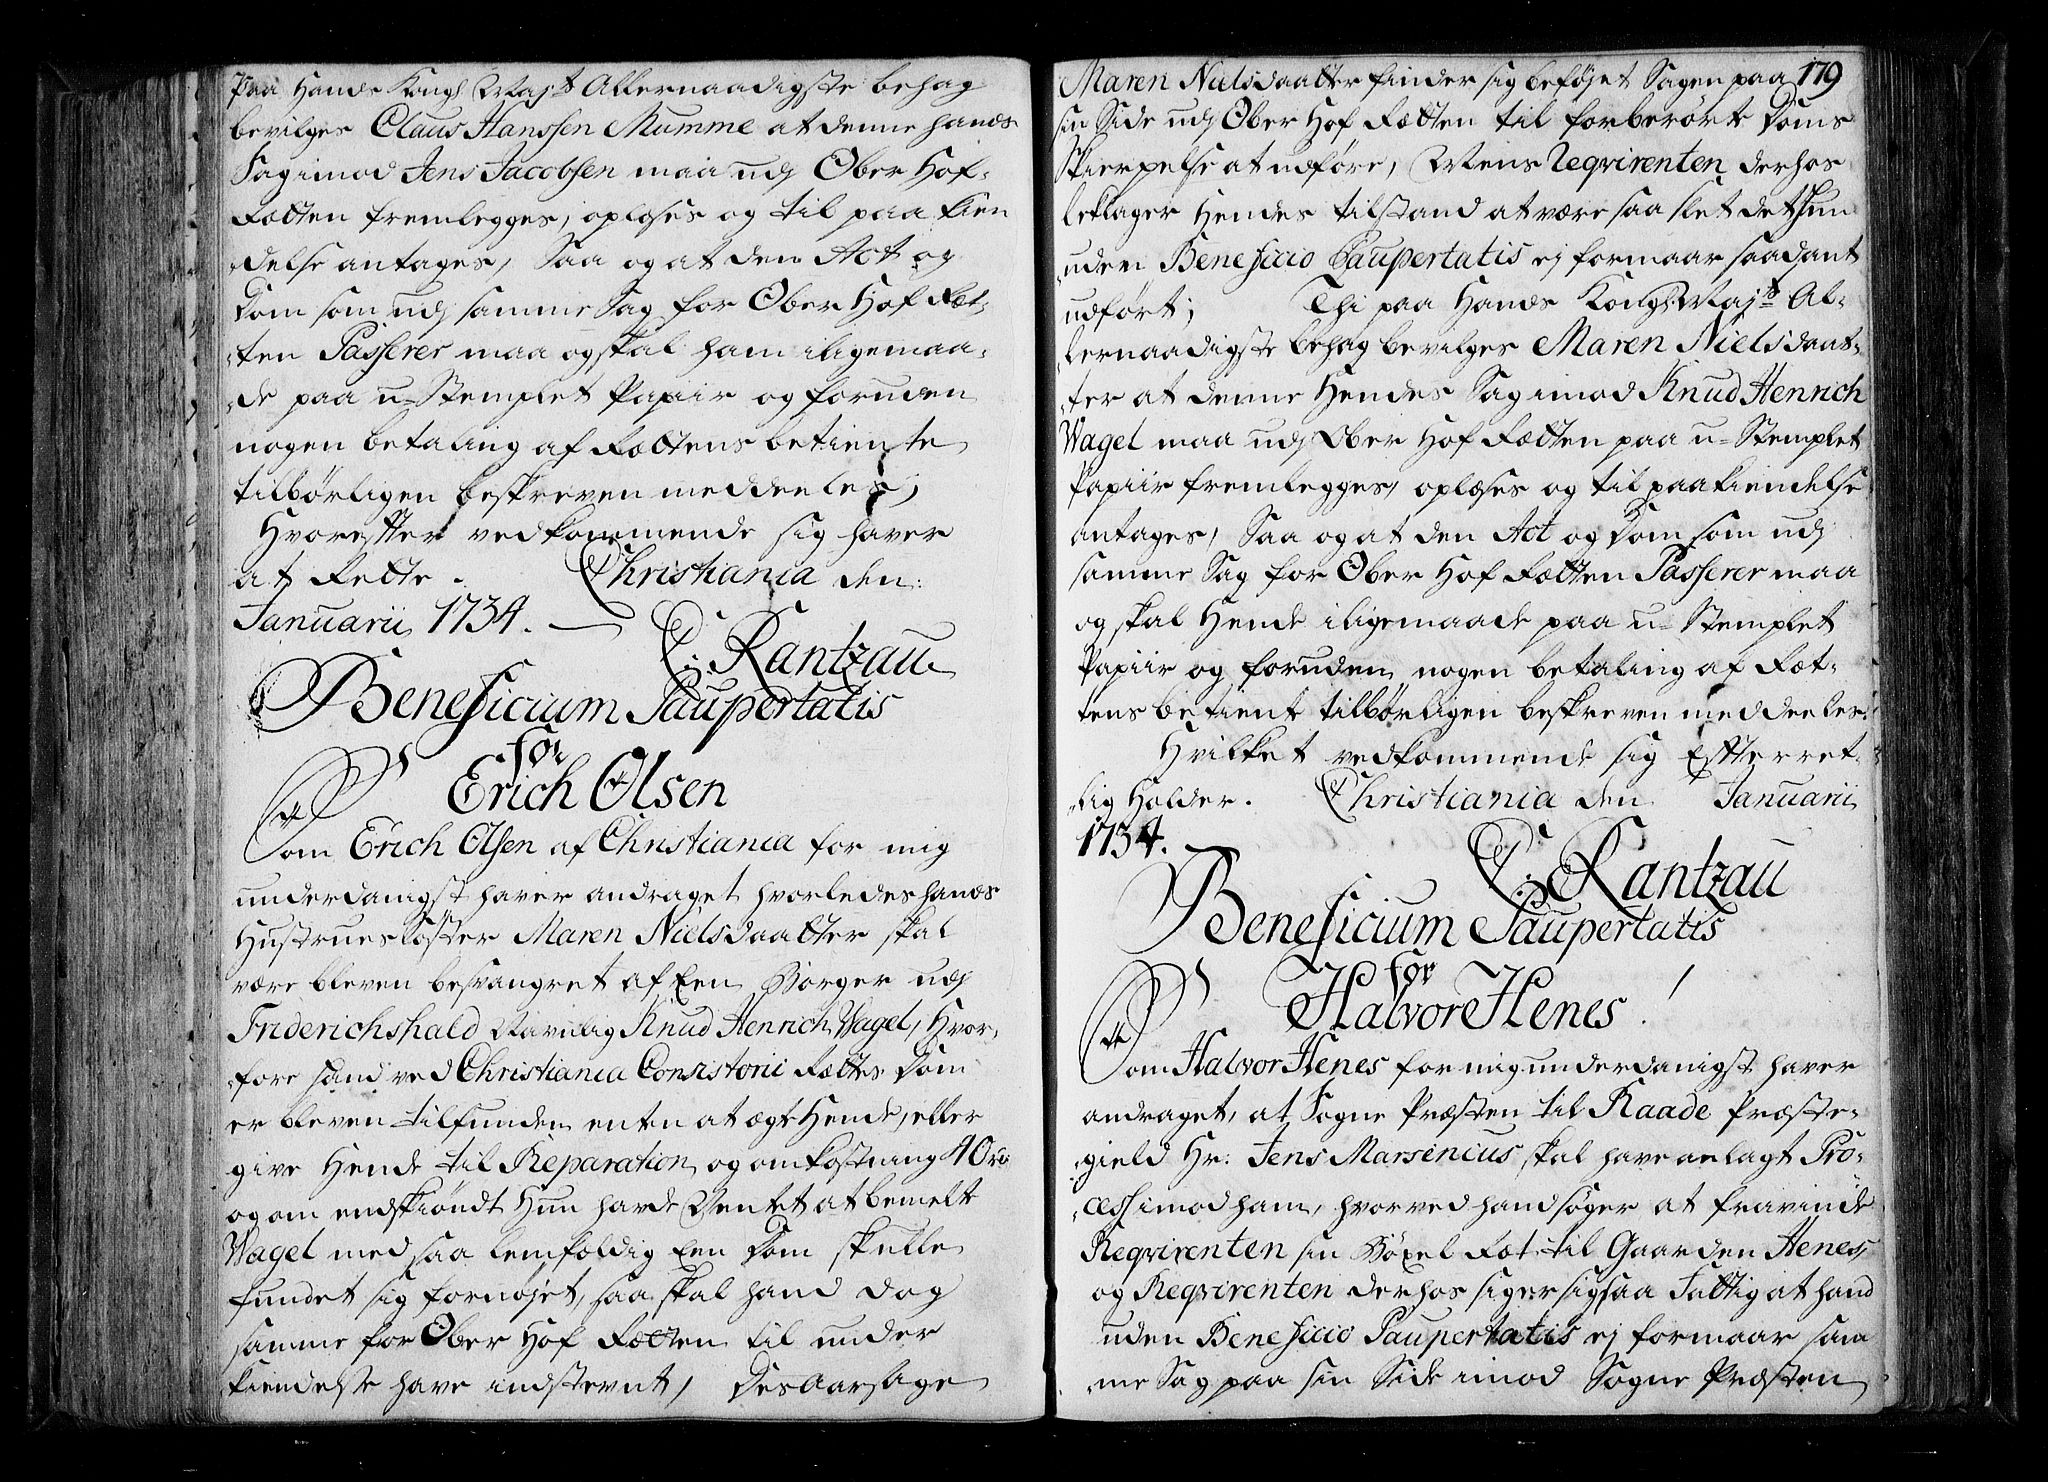 Paa Hands Kongl Mayts Allernaadigste behag
bevilges Claus Hanssen Mumme at denne hands
Sag imod Jens Jacobsen maa udj Ober Hof-
Rætten fremlegges, oplæses og til paa kien
delse antages, Saa og at den Act og
Dom som udj samme Sag for Ober Hof Ræt-
ten Passerer maa og skal ham iligemaa-
de paa u-Stemplet Papiir og foruden
nogen betaling af Rættens betiente
tilbørligen beskreven meddeeles;
Hvorefter vedkommende sig haver
at Rette. Christiania den
Januarii 1734.
C: Rantzau
Beneficium Paupertatis
for
Erich Olsen
Som Erich Olsen af Christiania for mig
underdanigst haver andraget hvorledes hands
Hustrues Søster Maren Nielsdaatter skal
være bleven besvangret af Een Borger udj
Friderichshald Navnlig Knud Henrich Wagel, Hvor-
fore hand ved Christiania Consistorii Rættes Dom
er bleven tilfunden enten at ægte Hende, eller
give Hende til Reparation og omkostning 40 rd
og om endskiøndt Hun hafde Ventet at bemelte
Wagel med saa lemfoldig Een Dom skulle
fundet sig fornøjet, saa skal hand dog
samme for Ober Hof Rætten til under
kiendelse have indstevnt, Des Aarsage
Maren Nielsdaatter finder sig beføjet Sagen paa 179
sin Side udj Ober Hof Rætten til forberørte Doms
Skierpelse at udføre, Mens Reqvirenten derhos
beklager Hendes tilstand at være saa slet det Hun
uden Beneficio Paupertatis ej formaar saadant
udført; Thi paa Hands Kongl. Mayts Al-
lernaadigste behag bevilges Maren Nielsdaat-
ter at denne Hendes Sag imod Knud Henrich
Wagel maa udj Ober Hof Rætten paa u-Stemplet
Papiir fremlegges, oplæses og til paakiendelse
antages, Saa og at den Act og Dom som udj
samme Sag for Ober Hof Rætten Passerer maa
og skal Hende iligemaade paa u-Stemplet
Papiir og foruden nogen betaling af Ræt-
tens betiente tilbørligen beskreven meddeeles.
Hvilket vedkommende sig Efterret-
lig Holder. Christiania den Januarii
1734.
C: Rantzau
Beneficium Paupertatis
for
Halvor Henes.
Som Halvor Henes for mig underdanigst haver
andraget, at Sogne Præsten til Raade Præste-
gield Hr. Jens Marsenius skal have anlagt Pro-
cess imod ham, hvorved hand søger at fravinde
Reqvirenten sin Bøxel Ræt til Gaarden Henes,
og Reqvirenten derhos siger sig saa Fattig at hand
uden Beneficio Paupertatis ej formaar sam
me Sag paa sin Side imod Sogne Præsten